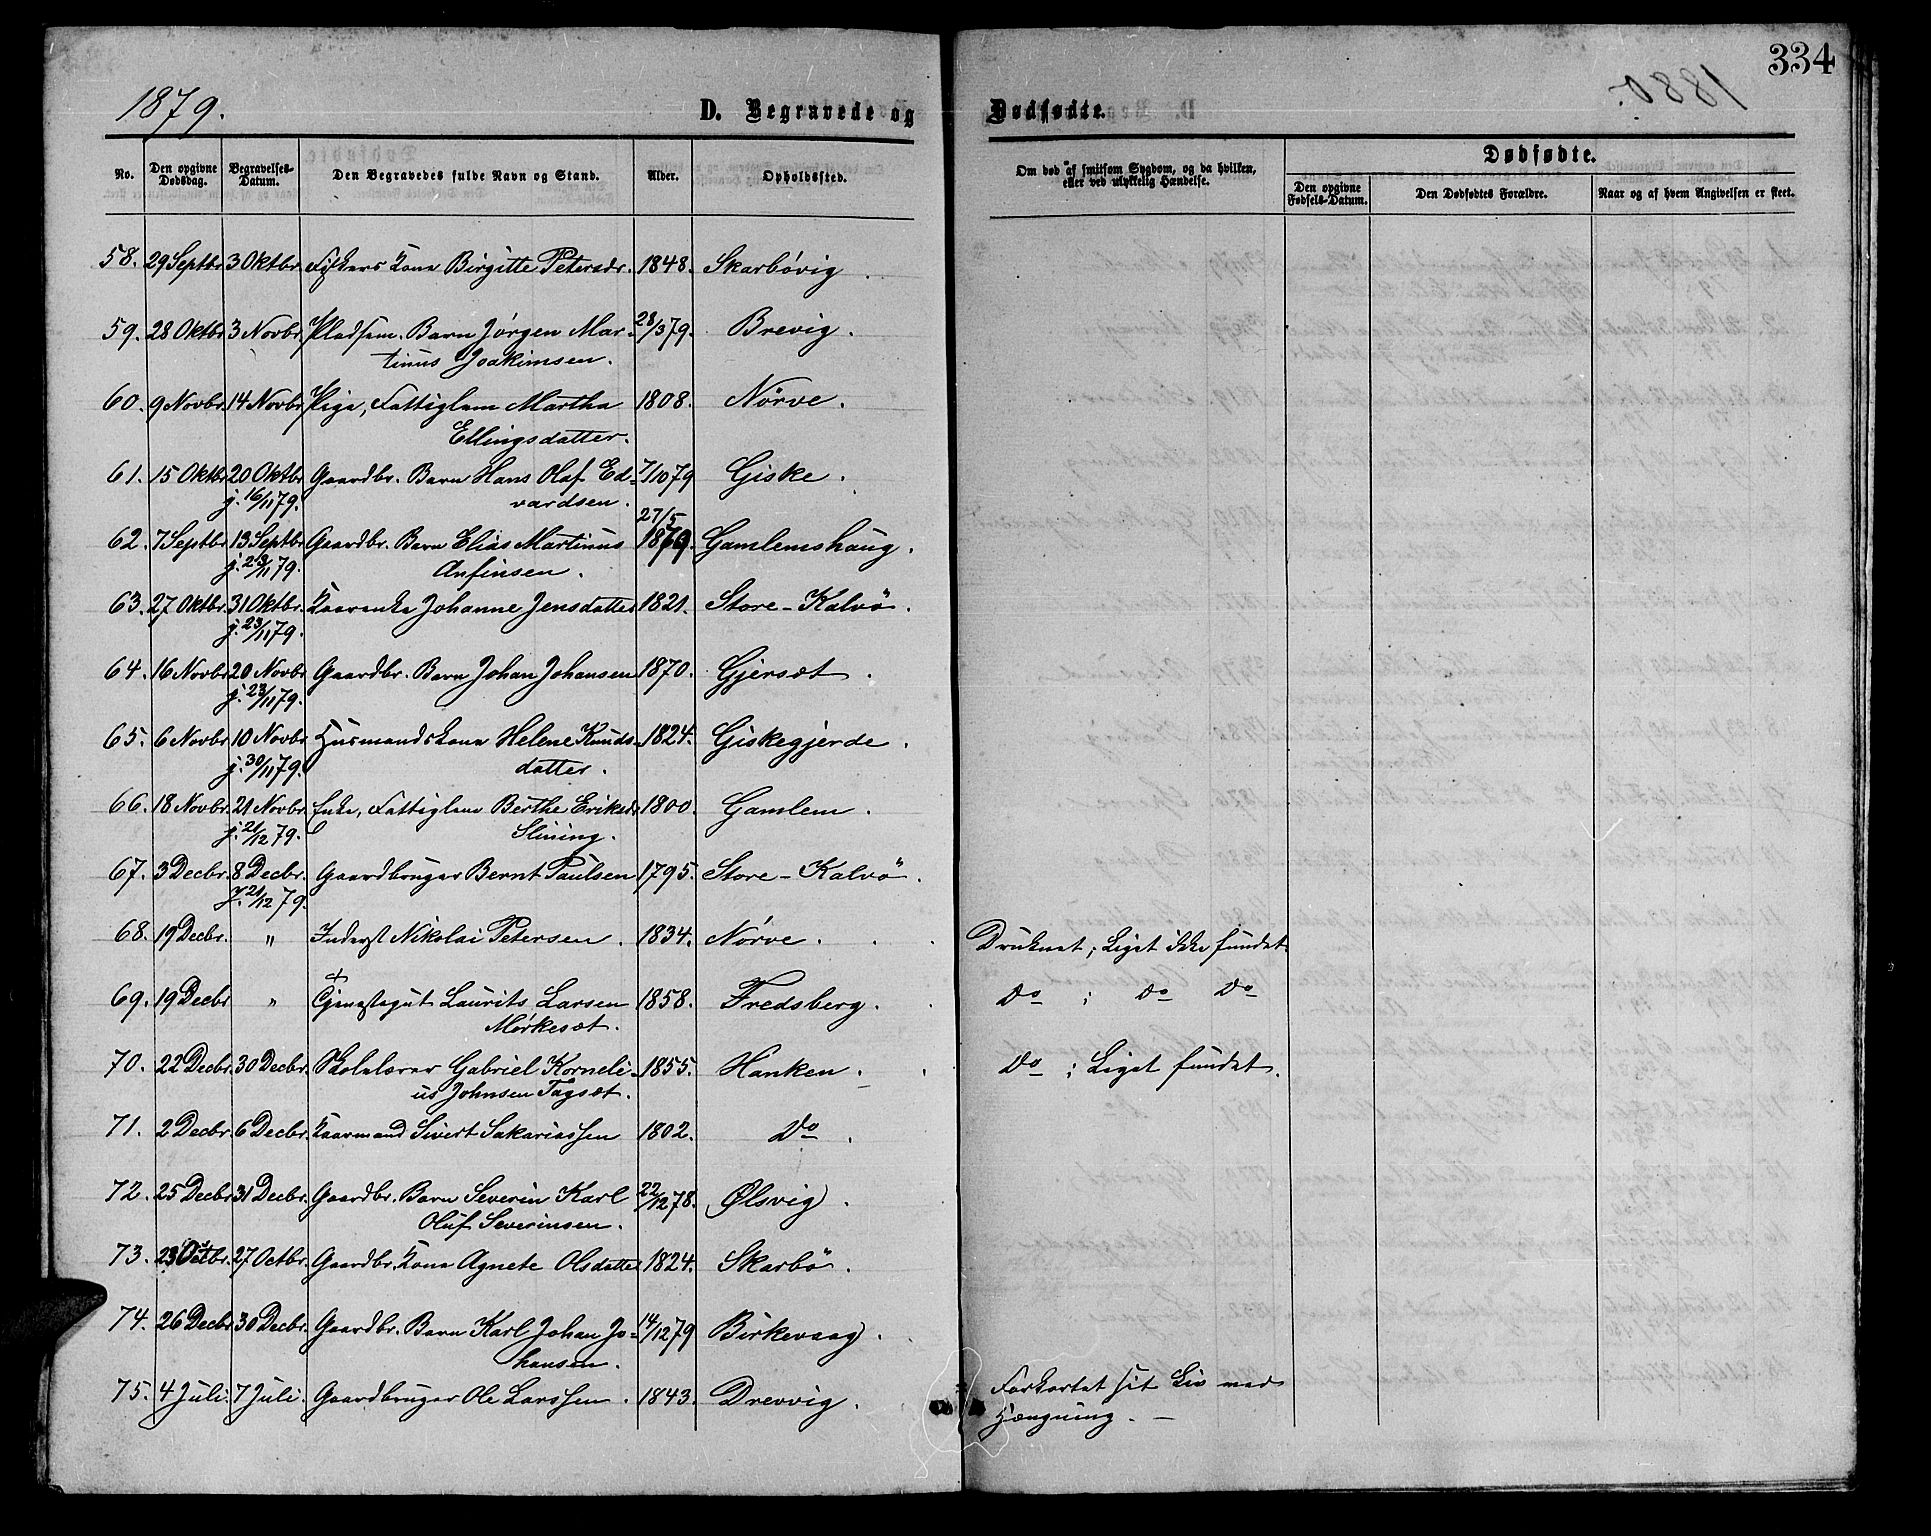 334
1879. D. Begravede og Dødfødte.
No. Den opgivne Dødsdag. Begravelses-Datum. Den Begravedes fulde Navn og Stand. Alder. Opholdssted. Om død af smitsom Sygdom, og da hvilken, eller ved ulykkelig Hændelse. Dødfødte.
Den opgivne Fødsels-Datum. Den Dødfødtes Forældre. Naar og af hvem Angivelsen er skeet.
58. 29 Septbr 3 Oktbr. Fiskers Kone Birgitte Petersdr. 1848. Skarbövig
59. 28 Oktbr 3 Novbr. Pladsem. Barn Jörgen Mar- 28/3 79. Brevig.
tinus Joakimsen.
60. 9 Novbr. 14 Novbr. Pige, Fattiglem Martha 1808. Nörve.
Ellingsdatter.
61. 15 Oktbr 20 Oktbr Gaardbr. Barn Hans Olaf Ed- 7/10 79 Giske.
j. 16/11 79. vardsen.
27/5
62. 7 Septbr 13 Septbr Gaardbr. Barn Elias Martinus 1879. Gamlemshaug.
j. 23/11 79. Anfinsen.
63. 27 Oktbr. 31 Oktbr. Kaarenke Johanne Jensdatter 1821. Store-Kalvö.
j. 23/11 79.
64. 16 Novbr. 20 Novbr. Gaardbr. Barn Johan Johansen 1870. Gjersæt.
j. 23/11 79.
65. 6 Novbr 10 Novbr. Husmandskone Helene Knuds- 1824. Giskegjerde.
j. 30/11 79. datter.
66. 18 Novbr. 21 Novbr. Enke, Fattiglem Berthe Eriksdr 1800. Gamlem.
j. 21/12 79. Slining.
67. 3 Decbr. 8 Decbr. Gaardbruger Bernt Paulsen 1795. Store-Kalvö.
j. 21/12 79.
68. 19 Decbr. " Inderst Nikolai Petersen. 1834. Nörve. Druknet; Liget ikke fundet
69. 19 Decbr " Tjenestegut Laurits Larsen 1858. Fredsberg. Do ; Do Do
Mörkesæt.
70. 22 Decbr. 30 Decbr. Skolelærer Gabriel Korneli- 1855. Hanken. Do ; Liget fundet.
us Johnsen Tågsæt.
71. 2 Decbr. 6 Decbr. Kaarmand Sivert Sakariassen 1802. Do.
72. 25 Decbr. 31 Decbr. Gaardbr. Barn Severin Karl 22/12 78. Ølsvig.
Oluf Severinsen.
73. 23 Octbr. 27 Octbr. Gaardbr. Kone Agnete Olsdatter 1824. Skarbö.
74. 26 Decbr. 30 Decbr. Gaardbr. Barn Karl Johan Jo- 14/12 79 Birkevaag.
hansen.
75. 4 Juli. 7 Juli. Gaardbruger Ole Larssen. 1843. Drevvig. Forkortet sit Liv ved
Hængning. —